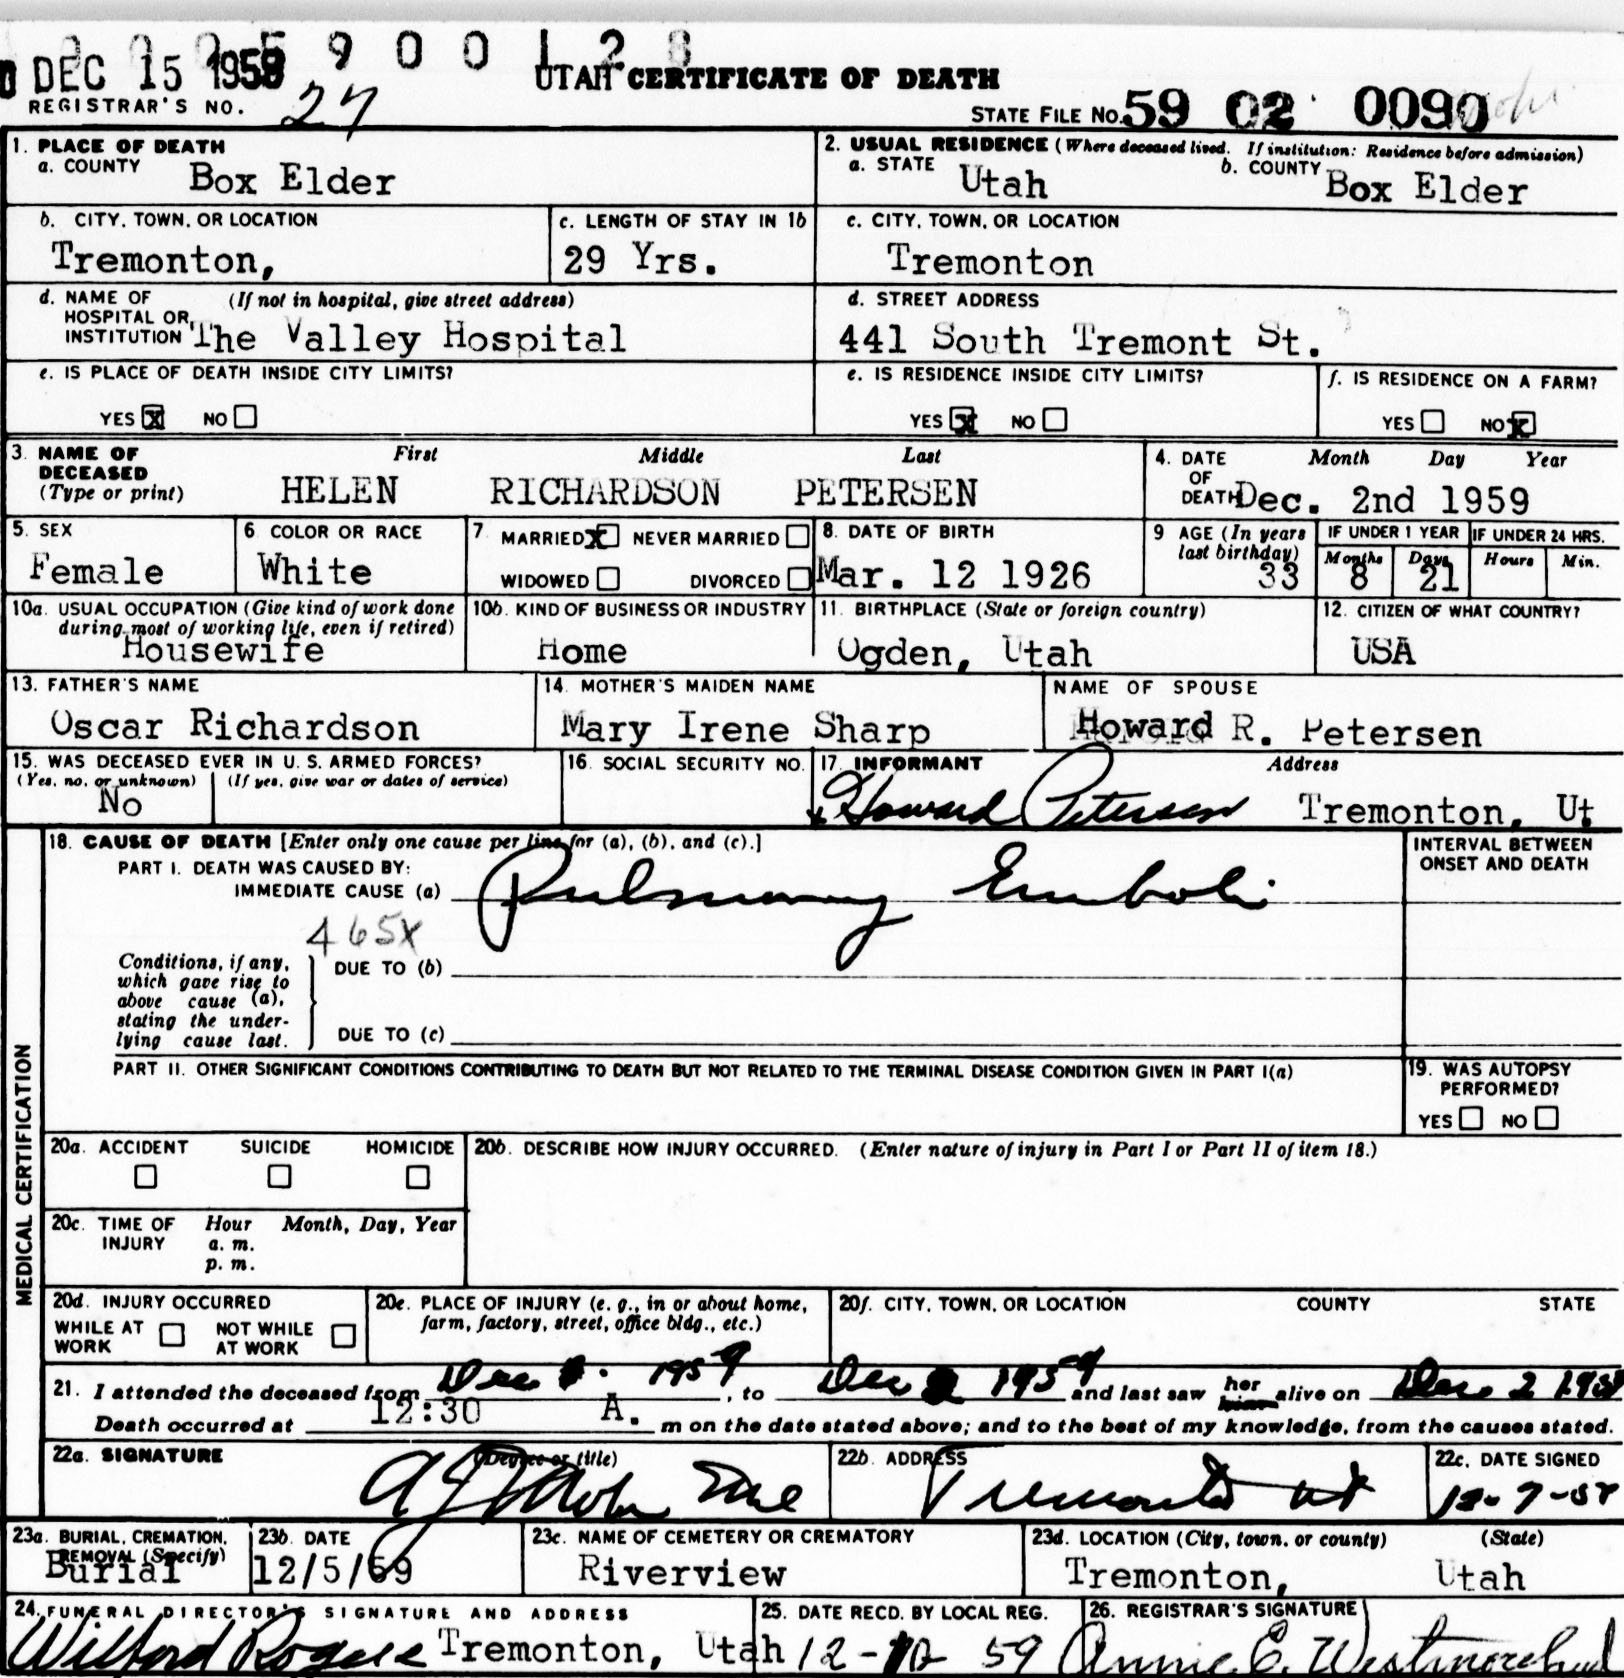 DEC 15 1959
UTAH CERTIFICATE OF DEATH
REGISTRAR'S NO. 27
STATE FILE NO. 59 02 0090
1. PLACE OF DEATH
a. COUNTY Box Elder
2. USUAL RESIDENCE (Where deceased lived. If institution: Residence before admission)
a. STATE Utah b. COUNTY Box Elder
b. CITY, TOWN, OR LOCATION Tremonton,
c. LENGTH OF STAY IN 1b 29 Yrs.
c. CITY, TOWN, OR LOCATION Tremonton
d. NAME OF HOSPITAL OR INSTITUTION (If not in hospital, give street address) The Valley Hospital
d. STREET ADDRESS 441 South Tremont St.
e. IS PLACE OF DEATH INSIDE CITY LIMITS? YES X NO
e. IS RESIDENCE INSIDE CITY LIMITS? YES X NO
f. IS RESIDENCE ON A FARM? YES NO X
3. NAME OF DECEASED (Type or print) First Middle Last
HELEN RICHARDSON PETERSEN
4. DATE OF DEATH Month Day Year
Dec. 2nd 1959
5. SEX Female
6. COLOR OR RACE White
7. MARRIED X NEVER MARRIED
WIDOWED DIVORCED
8. DATE OF BIRTH Mar. 12 1926
9. AGE (In years last birthday) 33
IF UNDER 1 YEAR Months 8 Days 21
IF UNDER 24 HRS. Hours Min.
10a. USUAL OCCUPATION (Give kind of work done during most of working life, even if retired) Housewife
10b. KIND OF BUSINESS OR INDUSTRY Home
11. BIRTHPLACE (State or foreign country) Ogden, Utah
12. CITIZEN OF WHAT COUNTRY? USA
13. FATHER'S NAME Oscar Richardson
14. MOTHER'S MAIDEN NAME Mary Irene Sharp
NAME OF SPOUSE Howard R. Petersen
15. WAS DECEASED EVER IN U. S. ARMED FORCES?
(Yes, no, or unknown) No (If yes, give war or dates of service)
16. SOCIAL SECURITY NO.
17. INFORMANT Howard Petersen Address Tremonton, Ut
MEDICAL CERTIFICATION
18. CAUSE OF DEATH [Enter only one cause per line for (a), (b), and (c).]
INTERVAL BETWEEN ONSET AND DEATH
PART I. DEATH WAS CAUSED BY:
IMMEDIATE CAUSE (a) Pulmonary Emboli
465X
Conditions, if any, which gave rise to above cause (a), stating the underlying cause last.
DUE TO (b)
DUE TO (c)
PART II. OTHER SIGNIFICANT CONDITIONS CONTRIBUTING TO DEATH BUT NOT RELATED TO THE TERMINAL DISEASE CONDITION GIVEN IN PART I(a)
19. WAS AUTOPSY PERFORMED? YES NO
20a. ACCIDENT SUICIDE HOMICIDE
20b. DESCRIBE HOW INJURY OCCURRED. (Enter nature of injury in Part I or Part II of item 18.)
20c. TIME OF INJURY Hour a. m. p. m. Month, Day, Year
20d. INJURY OCCURRED
WHILE AT WORK NOT WHILE AT WORK
20e. PLACE OF INJURY (e. g., in or about home, farm, factory, street, office bldg., etc.)
20f. CITY, TOWN, OR LOCATION COUNTY STATE
21. I attended the deceased from Dec 1959, to Dec 2 1959 and last saw her him alive on Dec 2 1959
Death occurred at 12:30 A. m on the date stated above; and to the best of my knowledge, from the causes stated.
22a. SIGNATURE (Degree or title)
22b. ADDRESS Tremonton ut
22c. DATE SIGNED 12-7-59
23a. BURIAL, CREMATION, REMOVAL (Specify) Burial
23b. DATE 12/5/59
23c. NAME OF CEMETERY OR CREMATORY Riverview
23d. LOCATION (City, town, or county) (State) Tremonton, Utah
24. FUNERAL DIRECTOR'S SIGNATURE AND ADDRESS
Wilford Rogers Tremonton, Utah
25. DATE RECD. BY LOCAL REG. 12-12 59
26. REGISTRAR'S SIGNATURE Annie E. Westmoreland